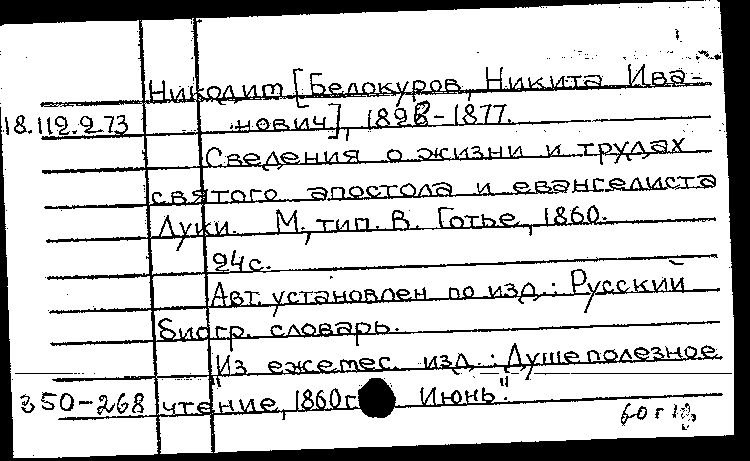 Никодим [Белокуров, Никита Ива-
18.112.2.73 нович], 1828-1877.
Сведения о жизни и трудах
святого апостола и евангелиста
Луки. М., тип. В. Готье, 1860.
24с.
Авт. установлен по изд.: Русский
биогр. словарь.
"Из ежемес. изд.: Душеполезное
350-268 чтение, 1860г Июнь".